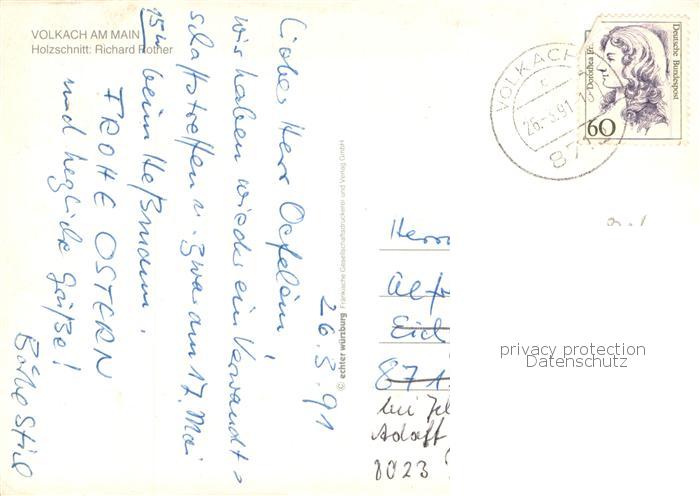 VOLKACH AM MAIN
Holzschnitt: Richard Rother
26.3.91
Lieber Herr
wir haben wieder ein Verwandt=
schaftstreffen u. zwar am 17. Mai
15 beim Heßmann.
FROHE OSTERN
und herzliche Grüße!
© echter würzburg Fränkische Gesellschaftsdruckerei und Verlag GmbH
VOLKACH
26.-3.91.-13
871
Dorothea Erxleben
Deutsche Bundespost
60
Herrn
Alfr
Eid
871
bei
Adolf
8023
privacy protection
Datenschutz